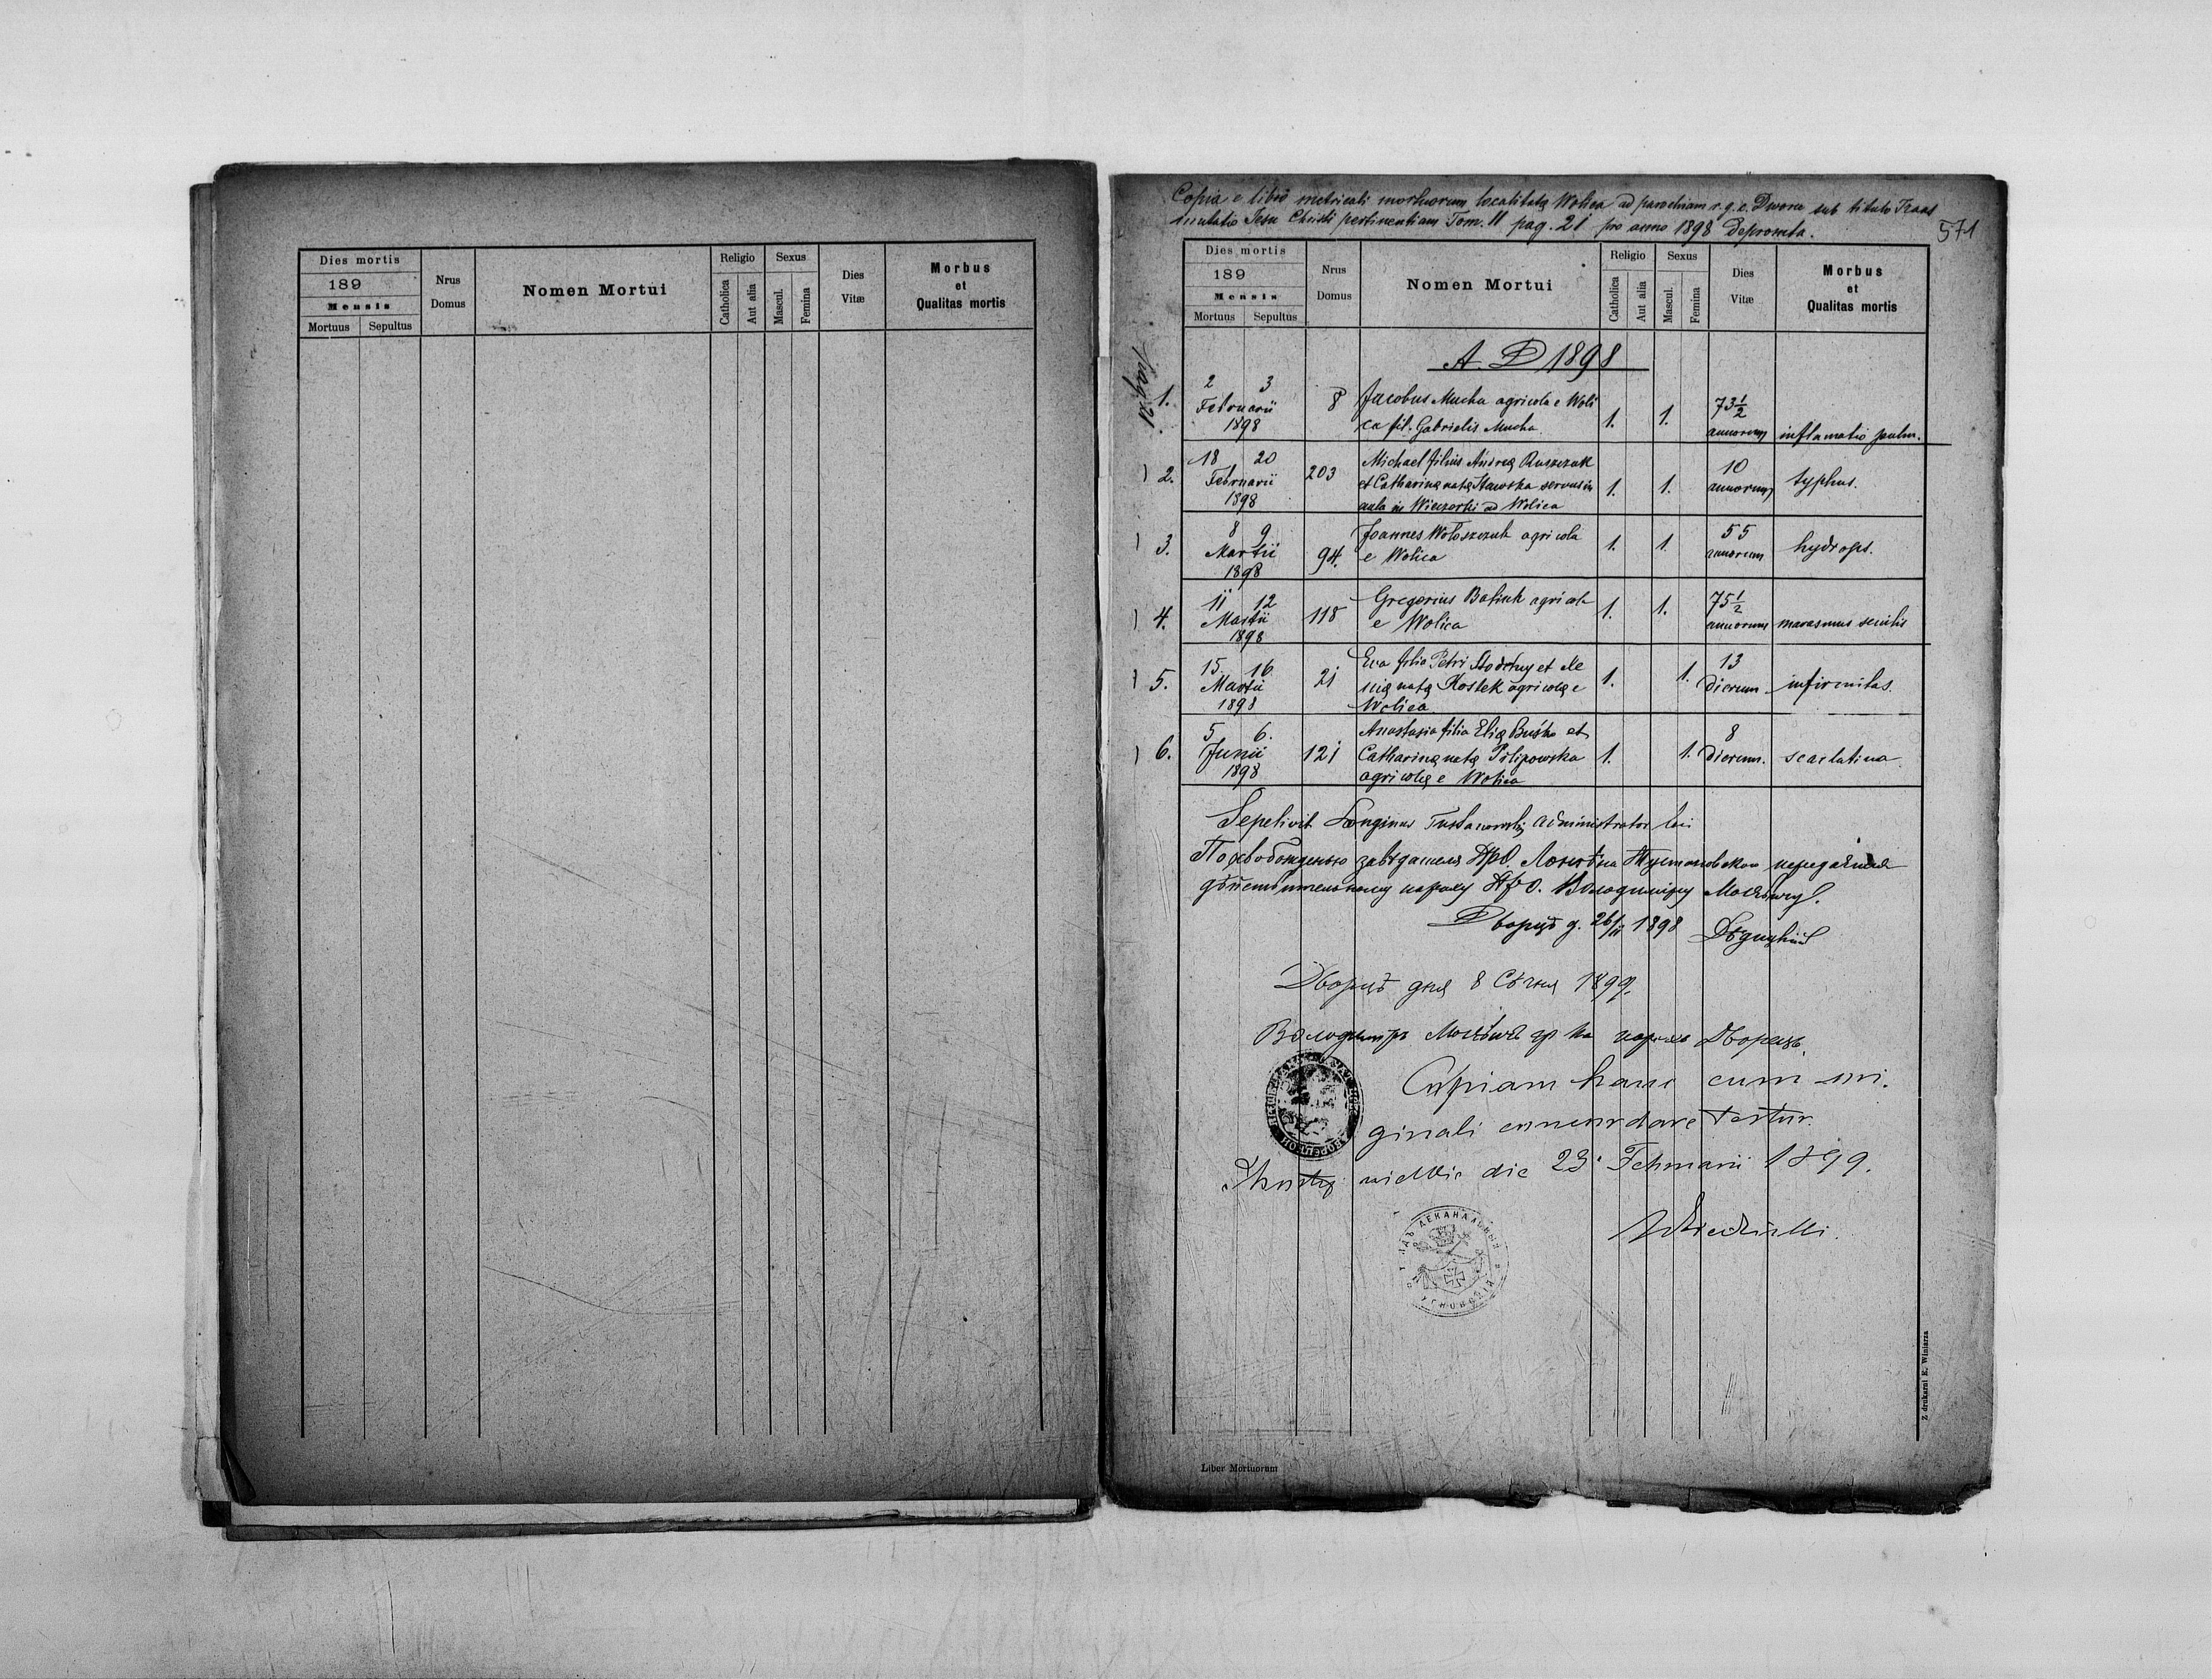 Dies mortis
189
Mensis
Mortuus Sepultus
Nrus
Domus
Nomen Mortui
Religio
Catholica
Aut alia
Sexus
Mascul.
Femina
Dies
Vitæ
Morbus
et
Qualitas mortis
Copia e libro metricali mortuorum localitatis Wolica ad parochiam r. g. c. Dworce sub titulo Trans
mutatio Jesu Christi pertinentiam Tom. II pag. 21 pro anno 1898 deprompta.
571
Dies mortis
189
Mensis
Mortuus Sepultus
Nrus
Domus
Nomen Mortui
Religio
Catholica
Aut alia
Sexus
Mascul.
Femina
Dies
Vitæ
Morbus
et
Qualitas mortis
pag. 21
A. D 1898
1. 2 3 Februarii 1898 8 Jacobus Mucha agricola e Woli
ca fil. Gabrielis Mucha 1. 1. 73 1/2 annorum inflamatio pulm.
2. 18 20 Februarii 1898 203 Michael filius Andreę Ruszczak
et Catharinę natę Stawska servus in 1. 1. 10 annorum typhus.
aula in Wieczorki ad Wolica
3. 8 9 Martii 1898 94. Joannes Wołoszczuk agricola
e Wolica 1. 1. 55 annorum hydrops.
4. 11 12 Martii 1898 118 Gregorius Batiuk agricola
e Wolica 1. 1. 75 1/2 annorum marasmus senilis
5. 15. 16. Martii 1898 21 Eva filia Petri et Xe
nię natę Kostek agricolę e 1. 1. 13 dierum infirmitas.
Wolica
6. 5 6. Junii 1898 121 Anastasia filia Elię Buśko et
Catharinę natę Pilipowska 1. 1. 8 dierum. scarlatina.
agricolę e Wolica
Sepelivit Longinus Tustanowskij administrator loci
завѣдателя Тустановскои
Володимиру
Дворцѣ д. 26/II 1898 Дѣдицкій
Дворцѣ дня 8 Сѣчня 1899.
Володимиръ гр ка парохъ Дворецъ.
Copiam hanc cum ori-
ginali concordare testor.
die 23 Februarii 1899.
ДЕКАНАЛЬНЫЙ
Z drukarni E. Winiarza
Liber Mortuorum